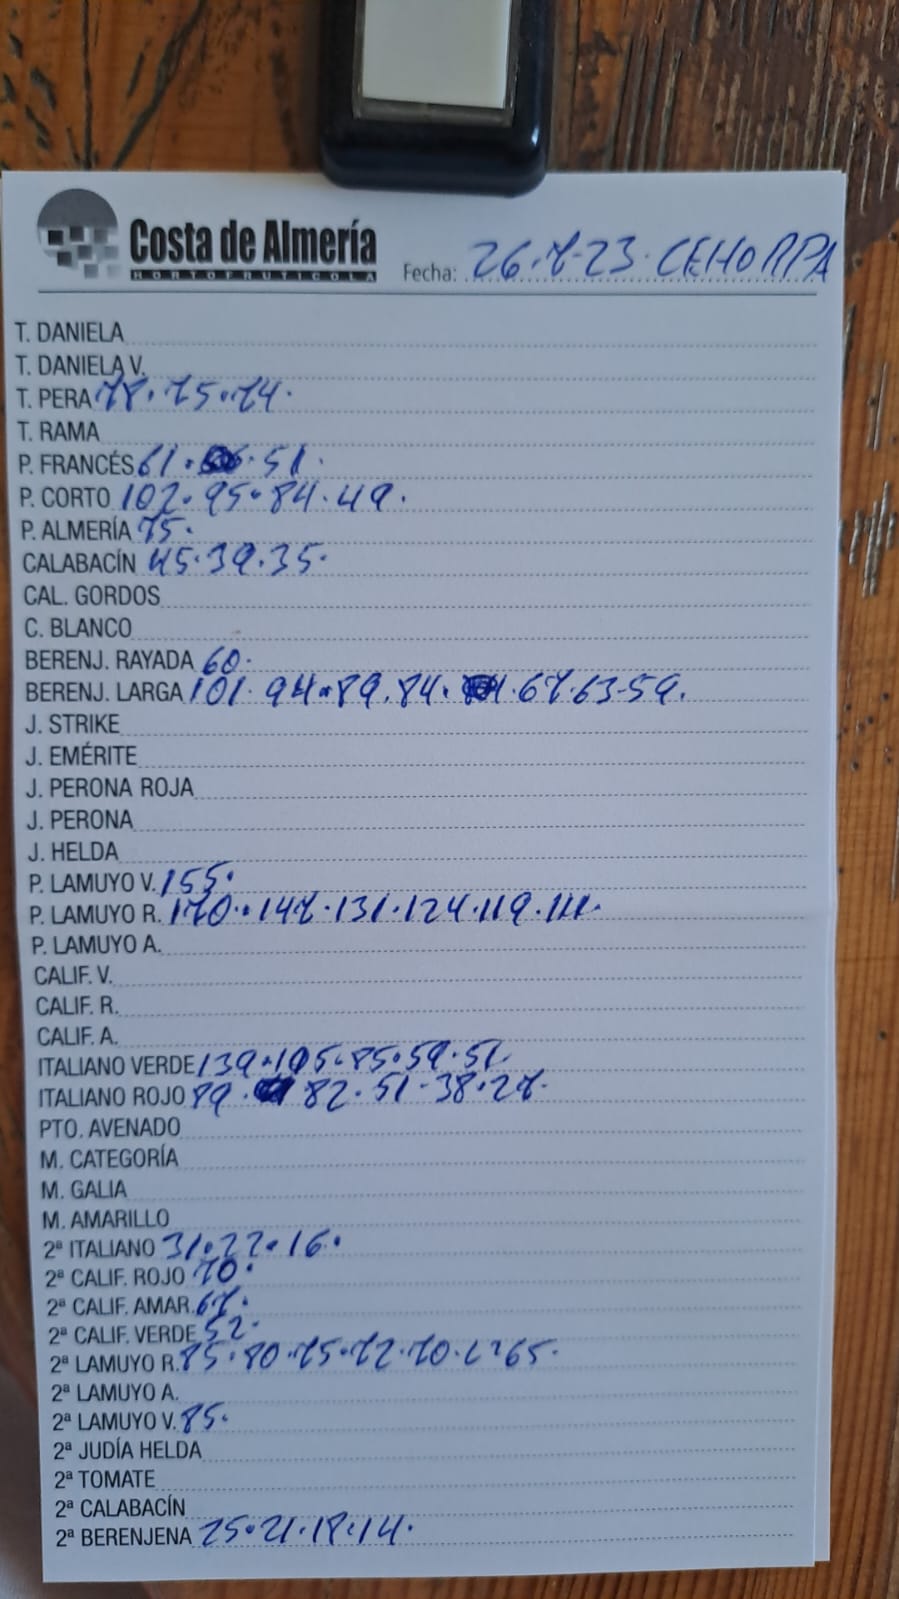 Costa de Almería
HORTOFRUTICOLA
Fecha: 26.7-23. CEHORPA
T. DANIELA
T. DANIELA V.
T. PERA 77. 75. 74.
T. RAMA
P. FRANCÉS 61. 51.
P. CORTO 102. 95. 84. 49.
P. ALMERÍA 75.
CALABACÍN 45. 39. 35.
CAL. GORDOS
C. BLANCO
BERENJ. RAYADA 60.
BERENJ. LARGA 101. 94. 89. 84. 67. 63-59.
J. STRIKE
J. EMÉRITE
J. PERONA ROJA
J. PERONA
J. HELDA
P. LAMUYO V. 155.
P. LAMUYO R. 170. 147. 131. 124. 119. 111.
P. LAMUYO A.
CALIF. V.
CALIF. R.
CALIF. A.
ITALIANO VERDE 139. 105. 85. 59. 51.
ITALIANO ROJO 89. 82. 51-38. 27.
PTO. AVENADO
M. CATEGORÍA
M. GALIA
M. AMARILLO
2ª ITALIANO 31. 22. 16.
2ª CALIF. ROJO 70.
2ª CALIF. AMAR. 67.
2ª CALIF. VERDE 52.
2ª LAMUYO R. 85. 80. 75. 72. 70. 65.
2ª LAMUYO A.
2ª LAMUYO V. 85.
2ª JUDÍA HELDA
2ª TOMATE
2ª CALABACÍN
2ª BERENJENA 25. 21. 18. 14.